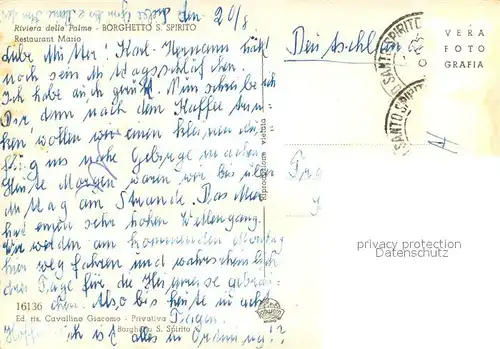 den 20/8
Riviera delle Palme - BORGHETTO S. SPIRITO
Restaurant Mario
Liebe Mutter! Karl-Hermann hält
noch sein Mittagsschläfchen.
Ich habe auch geruht. Nun schreibe ich
Dir denn nach dem Kaffee trin-
ken wollen wir einen kleinen Aus-
flug ins nahe Gebirge machen.
Heute Morgen waren wir bis über
Mittag am Strande. Das Meer
hat einen sehr hohen Wellengang.
Wir werden am kommenden Montag
hier weg fahren und wahrscheinlich
drei Tage für die Heimreise gebrau-
chen. Also bis heute in acht
Tagen.
Hoffentlich ist alles in Ordnung!?
16136
Ed. ris. Cavallino Giacomo - Privativa
Borghetto S. Spirito
Riproduzione vietata
Deutschland
VERA
FOTO
GRAFIA
SANTO SPIRITO
SANTO SPIRITO
privacy protection
oldthing.com